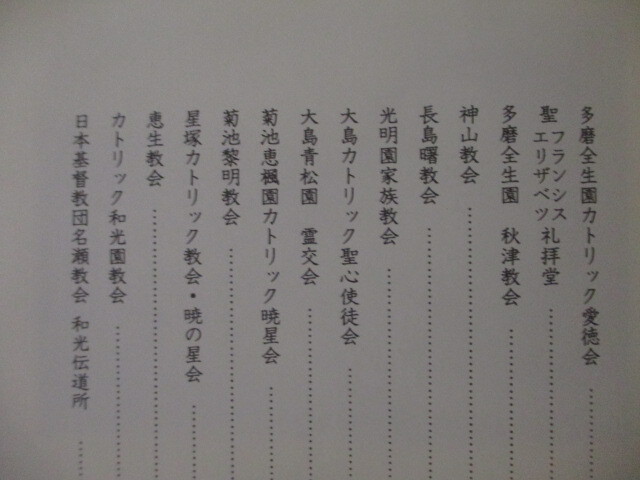 多磨全生園カトリック愛徳会
聖フランシスエリザベツ礼拝堂
多磨全生園　秋津教会
神山教会
長島曙教会
光明園家族教会
大島カトリック聖心使徒会
大島青松園　霊交会
菊池恵楓園カトリック暁星会
菊池黎明教会
星塚カトリック教会・暁の星会
恵生教会
カトリック和光園教会
日本基督教団名瀬教会　和光伝道所